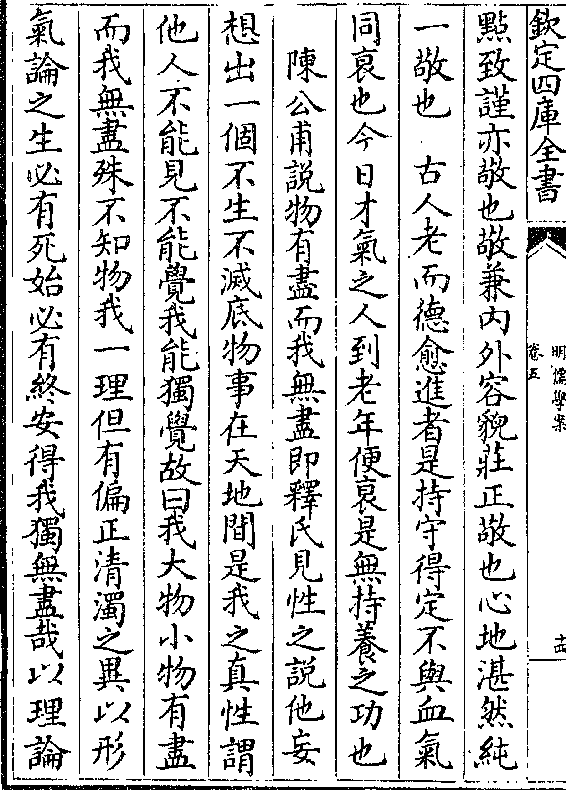 欽定四庫全書
明儒學案
卷五
十四
點致謹亦敬也敬兼内外容貌莊正敬也心地湛然純
一敬也　古人老而德愈進者是持守得定不與血氣
同衰也今日才氣之人到老年便衰是無持養之功也
陳公甫説物有盡而我無盡即釋氏見性之説他妄
想出一個不生不滅底物事在天地間是我之真性謂
他人不能見不能覺我能獨覺故曰我大物小物有盡
而我無盡殊不知物我一理但有偏正清濁之異以形
氣論之生必有死始必有終安得我獨無盡哉以理論